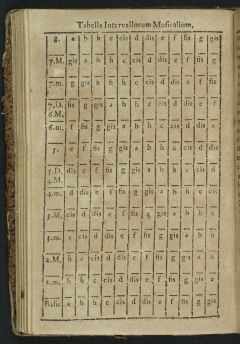 Tabella Intervallorum Musicalium.
8. a b h c cis d dis e f fis g gis
7.M. gis a b h c cis d dis e f fis g
7.m. g gis a b h c cis d dis e f fis
7.D. fis g gis a b h c cis d dis e f
6.M.
6.m. f fis g gis a b h c cis d dis e
5. e f fis g gis a b h c cis d dis
5.D. dis e f fis g gis a b h c cis d
4.M.
4.m. d dis e f fis g gis a b h c cis
3.M. cis d dis e f fis g gis a b h c
3.m. c cis d dis e f fis g gis a b h
2.M. h c cis d dis e f fis g gis a b
2.m. b h c cis d dis e f fis g gis a
Basis. a b h c cis d dis e f fis g gis